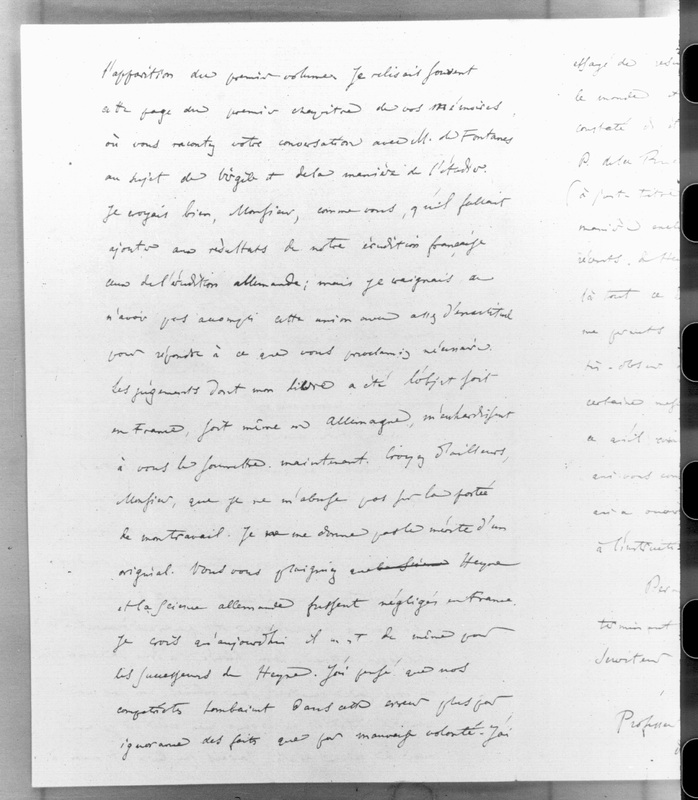 l'apparition du premier volume. Je relisais souvent
cette page du premier chapitre de vos Mémoires,
où vous racontez votre conversation avec M. de Fontanes
au sujet de Virgile et de la manière de l'étudier.
Je voyais bien, Monsieur, comme vous, qu'il fallait
ajouter aux résultats de notre érudition française
ceux de l'érudition allemande; mais je craignais de
n'avoir pas accompli cette union avec assez d'exactitude
pour répondre à ce que vous proclamiez nécessaire.
Les jugements dont mon livre a été l'objet soit
en France, soit même en Allemagne, m'enhardissent
à vous le soumettre maintenant. Croyez d'ailleurs,
Monsieur, que je ne m'abuse pas sur la portée
de mon travail. Je ne me donne pas le mérite d'un
original. Vous vous plaigniez que Heyne
et la science allemande fussent négligés en France.
Je crois qu'aujourd'hui il en est de même pour
les successeurs de Heyne. J'ai pensé que nos
compatriotes tombaient dans cette erreur plus par
ignorance des faits que par mauvaise volonté. J'ai
essayé de
le monde et
constaté
P. de la
à
manière
récents,
là tout ce

très-obscur
certaine

qui vous
qui a
à l'institut

terminant
Serviteur
Professeur